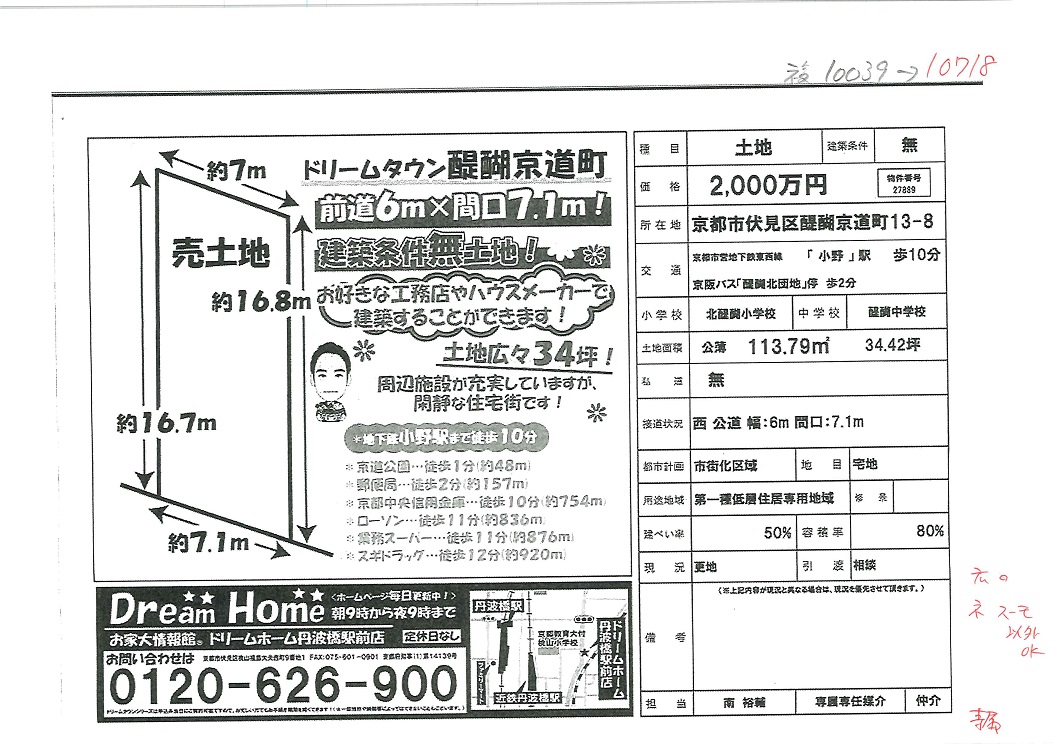 10039→10718
約7m
売土地
約16.8m
約16.7m
約7.1m
ドリームタウン醍醐京道町
前道6m×間口7.1m！
建築条件無土地！
お好きな工務店やハウスメーカーで
建築することができます！
土地広々34坪！
周辺施設が充実していますが、
閑静な住宅街です！
＊地下鉄小野駅まで徒歩10分
＊京道公園…徒歩1分(約48m)
＊郵便局…徒歩2分(約157m)
＊京都中央信用金庫…徒歩10分(約754m)
＊ローソン…徒歩11分(約836m)
＊業務スーパー…徒歩11分(約876m)
＊スギドラッグ…徒歩12分(約920m)
種目 土地 建築条件 無
価格 2,000万円 物件番号 27889
所在地 京都市伏見区醍醐京道町13-8
交通 京都市営地下鉄東西線 「小野」駅 歩10分
京阪バス「醍醐北団地」停 歩2分
小学校 北醍醐小学校 中学校 醍醐中学校
土地面積 公薄 113.79㎡ 34.42坪
私道 無
接道状況 西 公道 幅:6m 間口:7.1m
都市計画 市街化区域 地目 宅地
用途地域 第一種低層住居専用地域
建ぺい率 50% 容積率 80%
現況 更地 引渡 相談
(※上記内容が現況と異なる場合は、現況を優先させて頂きます。)
備考
担当 南 裕輔 専属専任媒介 仲介
Dream Home <ホームページ毎日更新中！>
朝9時から夜9時まで
お家大情報館。ドリームホーム丹波橋駅前店 定休日なし
お問い合わせは
0120-626-900
丹波橋駅
京都教育大付
桃山小学校
ドリームホーム
丹波橋駅前店
ファミリーマート
近鉄丹波橋駅
ネ スーモ
以外
OK